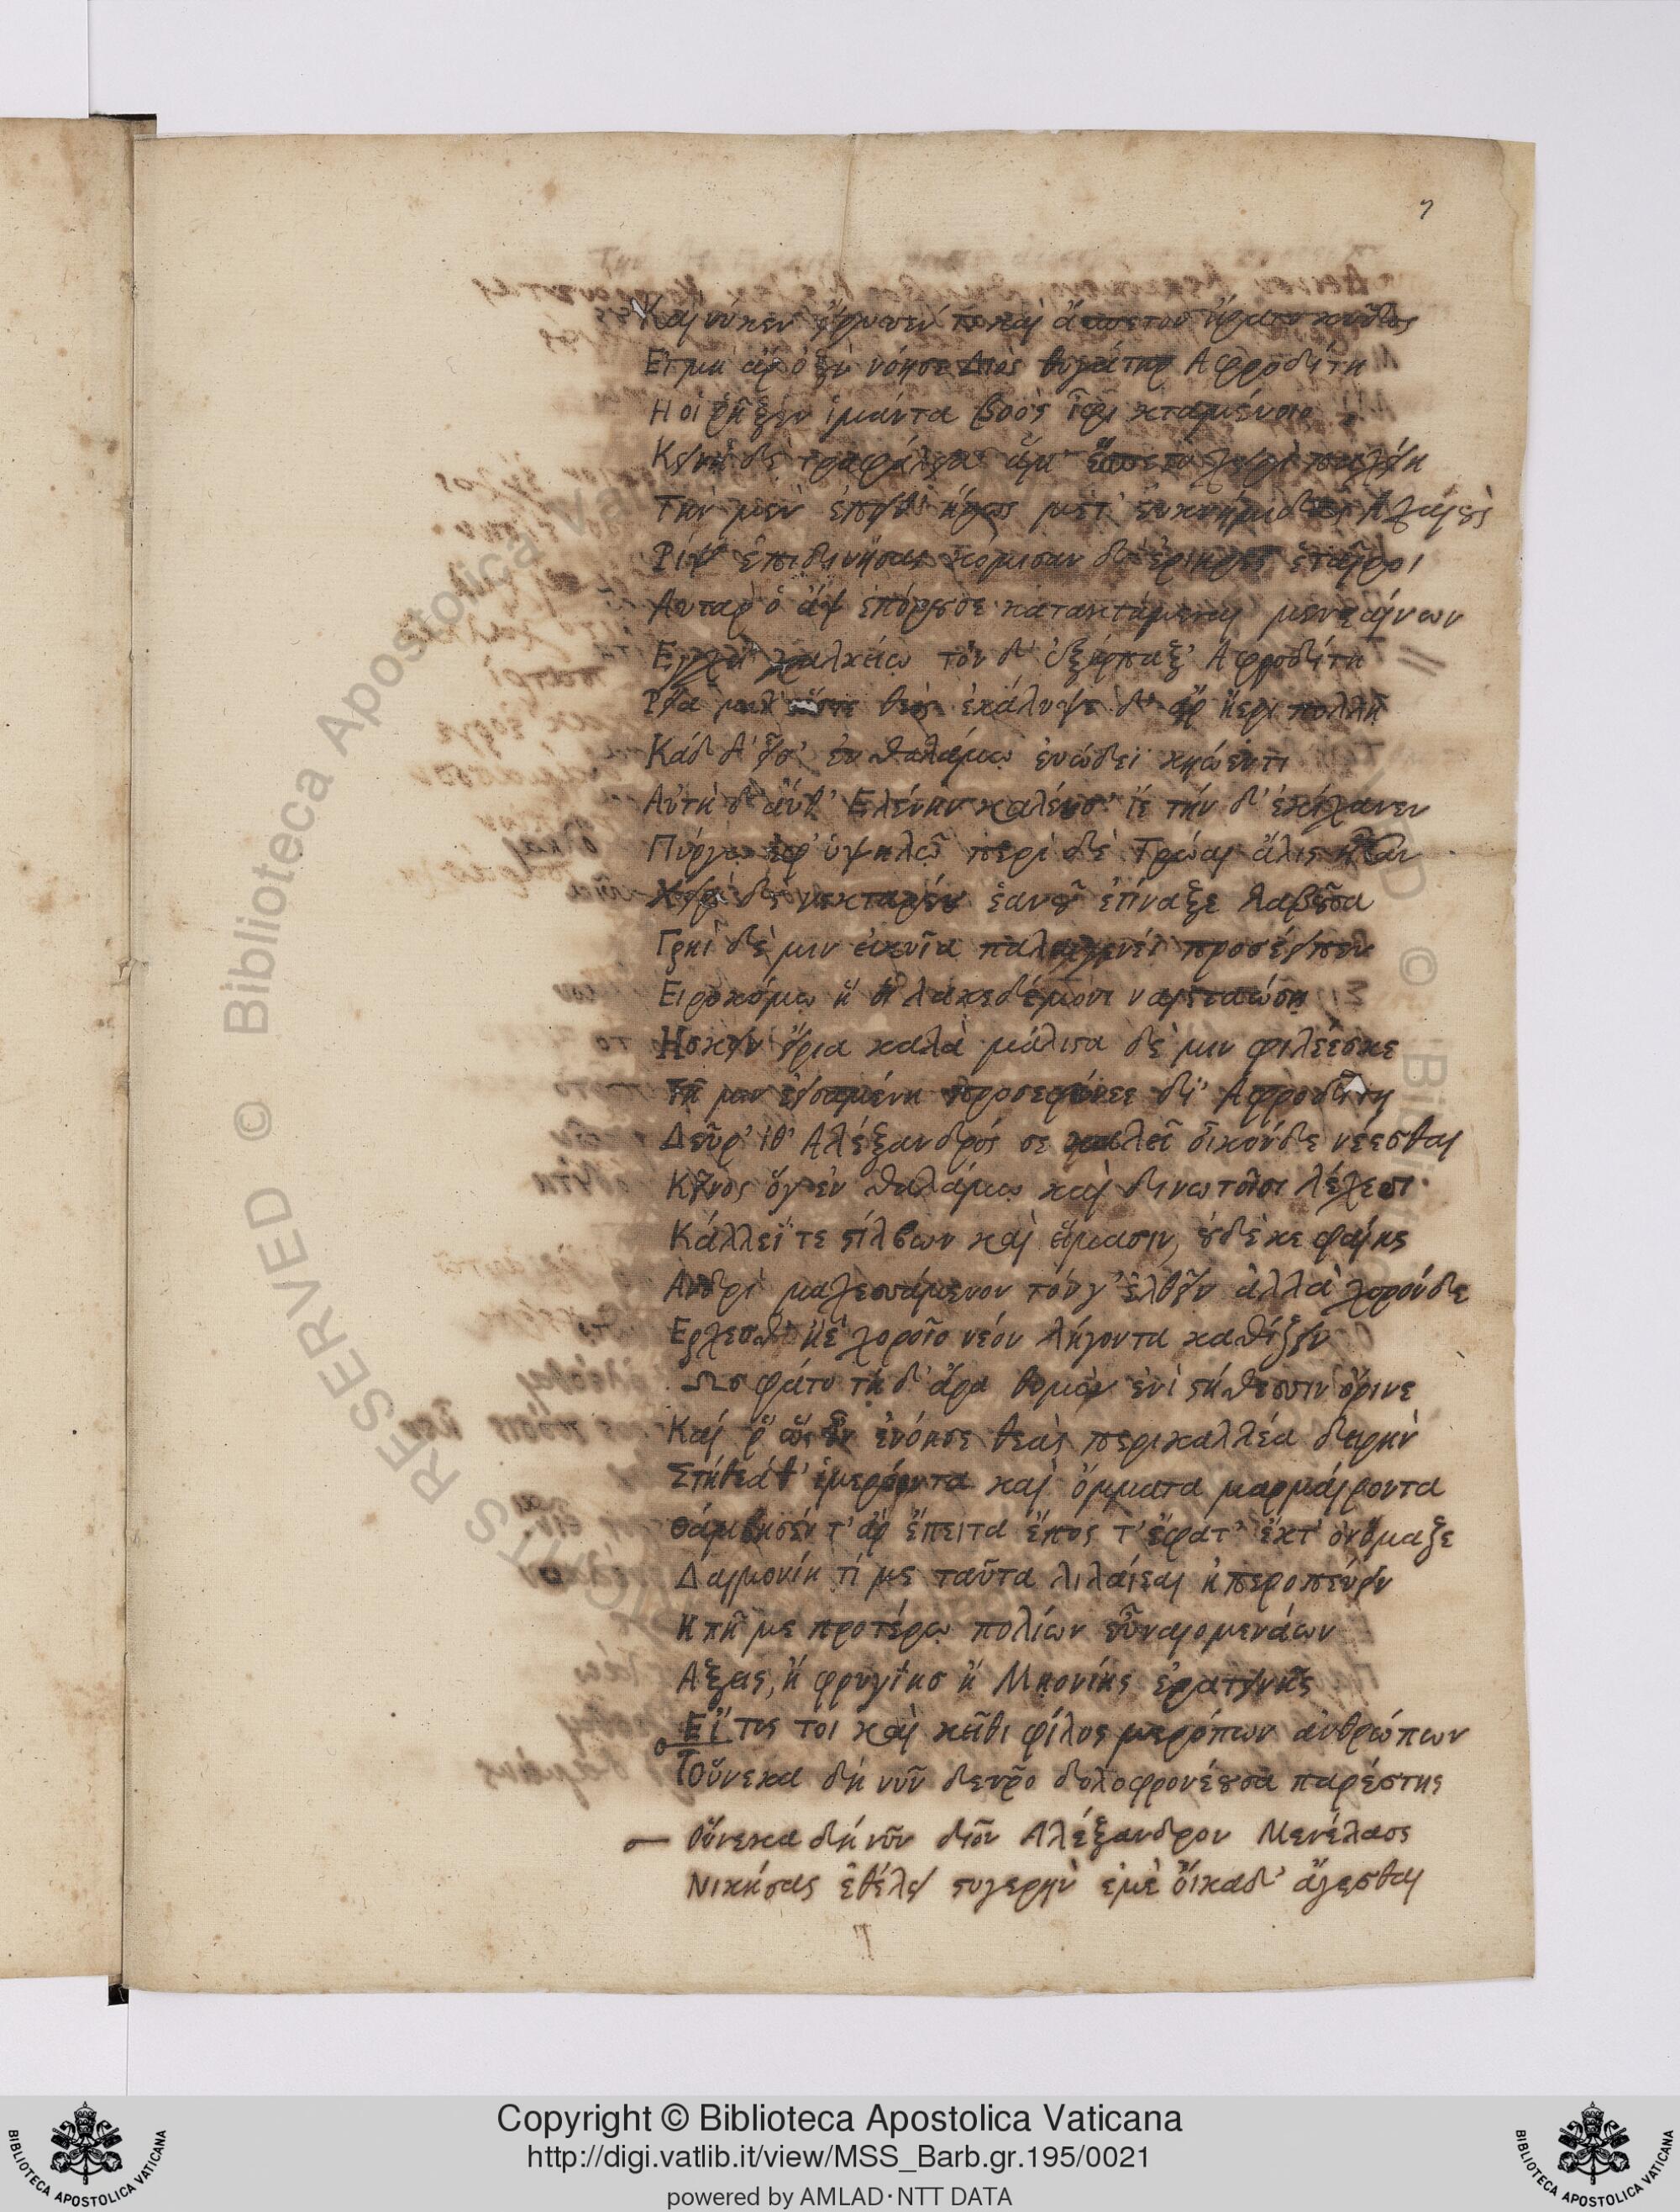 7
Καί νύκεν εἴρυσέν τε καὶ ἄσπετον ἤρατο κῦδος
Εἰ μὴ ἀρ ὀξὺ νόησε Διὸς θυγάτηρ Αφροδίτη
Η οἱ ῥῆξεν ἱμάντα βοὸς ἶφι κταμένοιο
Κεινὴ δὲ τρυφάλεια ἅμ' ἕσπετο χειρὶ παχείῃ
Τὴν μὲν ἔπειθ' ἥρως μετ' ἐυκνήμιδας Αχαιοὺς
Ρίψ' ἐπιδινήσας κόμισαν δ' ἐρίηρες ἑταῖροι
Αυταρ ὁ ἂψ ἐπόρουσε κατακτάμεναι μενεαίνων
Εγχεϊ χαλκείῳ τὸν δ' ἐξήρπαξ' Αφροδίτη
Ρεῖα μαλ' ὥστε θεὸς ἐκάλυψε δ' ἀρ ἠέρι πολλῇ
Κάδ δ' εἷσ' ἐν θαλάμῳ ἐυώδεϊ κηώεντι
Αὐτὴ δ' αὖθ' Ελένην καλέουσ' ἴε τήν δ' ἐκίχανεν
Πύργῳ ἐφ' ὑψηλῷ περὶ δὲ Τρῶαι ἅλις ἦσαν
Χειρὶ δὲ νεκταρέου ἑανοῦ ἐτίναξε λαβοῦσα
Γρηῒ δέ μιν εἰκυῖα παλαιγενέϊ προσέειπεν
Ειροκόμῳ ἥ οἱ λακεδέμονι ναιεταώσῃ
Ησκειν εἴρια καλὰ μάλιστα δέ μιν φιλέεσκε
Τῇ μιν εἰσαμένη προσεφώνεε δῖ' Αφροδίτη
Δεῦρ' ἴθ' Αλέξανδρός σε καλεῖ οἶκόνδε νέεσθαι
Κεῖνος ὅγ' ἐν θαλάμῳ καὶ δινωτοῖσι λέχεσι
Κάλλεΐ τε στίλβων καὶ εἵμασιν, οὐδέ κε φαίης
Ανδρὶ μαχεσσάμενον τόνγ' ἐλθεῖν ἀλλὰ χορόνδε
Ερχεσθ' ἠὲ χοροῖο νέον λήγοντα καθίζειν
Ως φάτο τῇ δ' ἄρα θυμὸν ἐνὶ στήθεσσιν ὄρινε
Καί ῥ' ὡς οὖν ἐνόησε θεᾶς περικαλλέα δειρὴν
Στήθεά θ' ἱμερόεντα καὶ ὄμματα μαρμαίροντα
Θάμβησέν τ' ἀρ ἔπειτα ἔπος τ' ἔφατ' ἔκτ' ὀνόμαζε
Δαιμονίη τί με ταῦτα λιλαίεαι ἠπεροπεύειν
Η πῆ με προτέρω πολίων εὖναιομενάων
Αξεις, ἢ φρυγίης ἢ Μηονίης ἐρατεινῆς
Εἴ τις τοι καὶ κεῖθι φίλος μερόπων ἀνθρώπων
Τοὔνεκα δὴ νῦν δεῦρο δολοφρονέουσα παρέστης
Οὕνεκα δὴ νῦν δῖον Αλέξανδρον Μενέλαος
Νικήσας ἐθέλει στυγερὴν ἐμὲ οἴκαδ' ἄγεσθαι
© Biblioteca Apostolica Vaticana
RIGHTS RESERVED
Copyright © Biblioteca Apostolica Vaticana
http://digi.vatlib.it/view/MSS_Barb.gr.195/0021
powered by AMLAD·NTT DATA
BIBLIOTECA APOSTOLICA VATICANA
BIBLIOTECA APOSTOLICA VATICANA